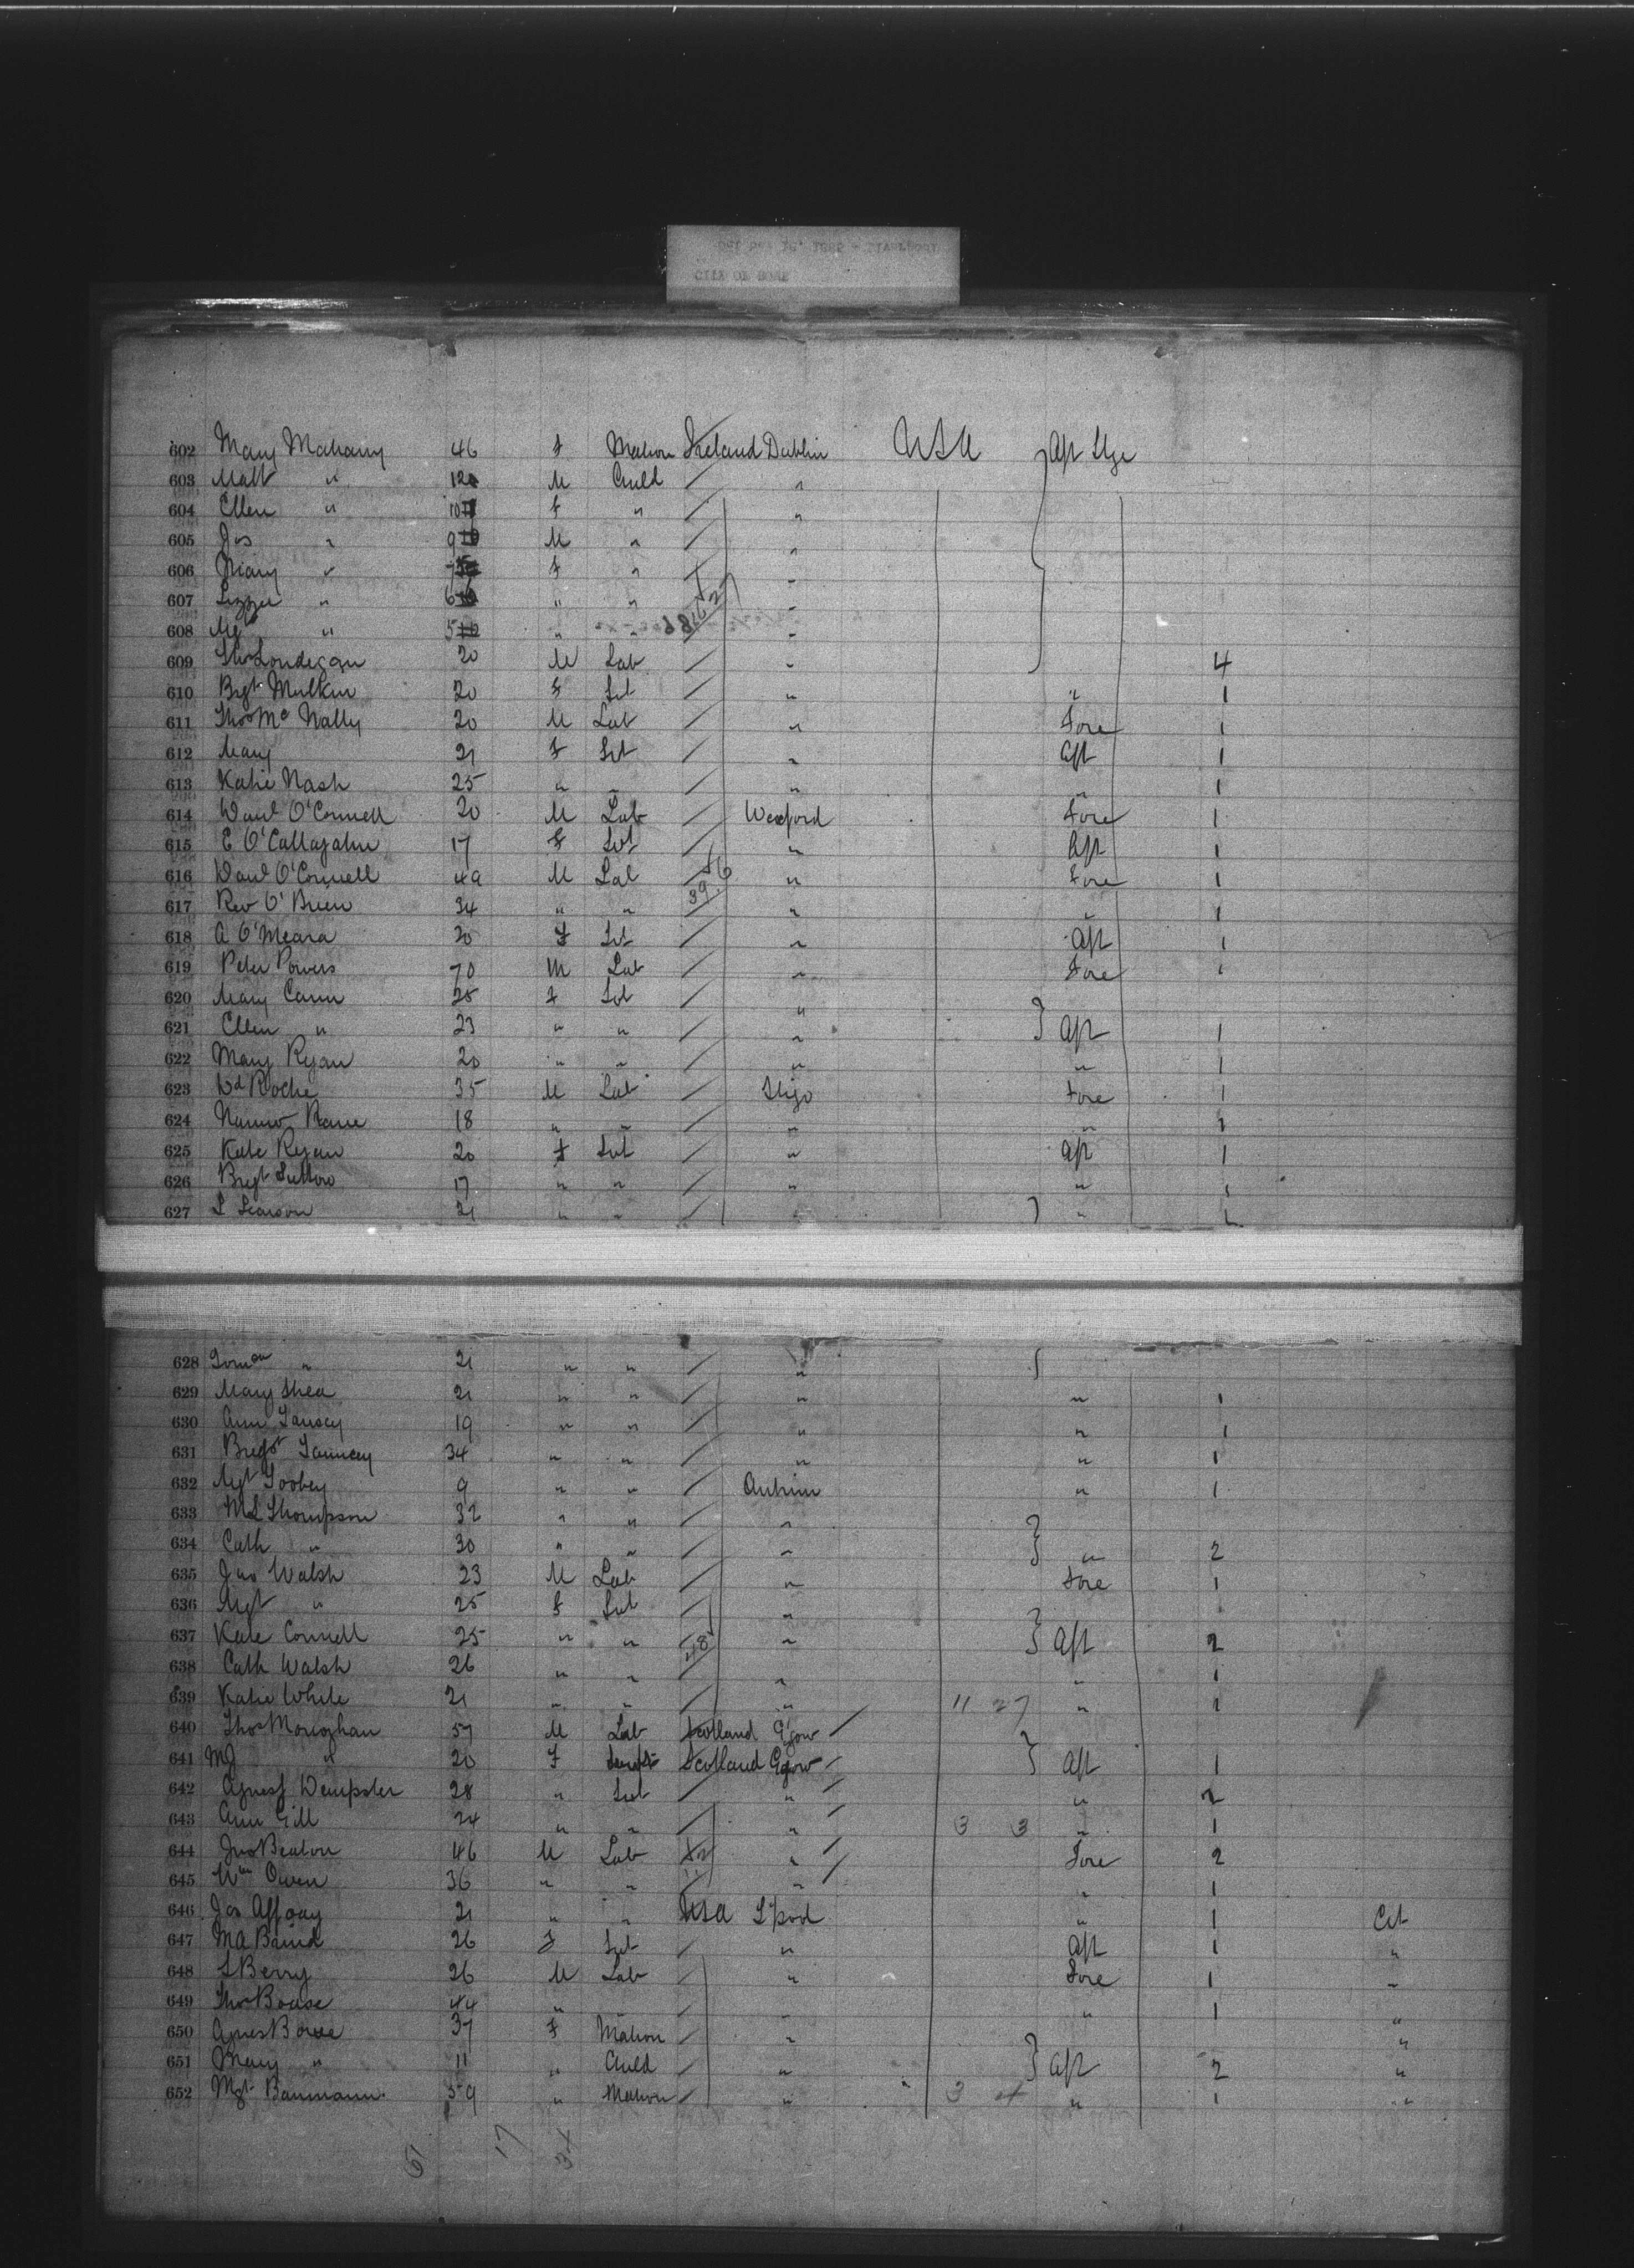 CITY OF ROME
602 Mary Mahany 46 F Matron Ireland Dublin USA Aft Stge
603 Matt " 12 M Child / "
604 Ellen " 10 F " / "
605 Jas " 9 M " / "
606 Mary " 7 F " / "
607 Lizzie " 6 " " / "
608 Mgt " 5 " " / "
609 Thos Londegan 20 M Lab / " 4
610 Bgt Mulkin 20 F Svt / " " 1
611 Thos Mc Nally 20 M Lab / " Fore 1
612 Mary 21 F Svt / " Aft 1
613 Katie Nash 25 " " / " " 1
614 Danl O'Connell 20 M Lab / Wexford Fore 1
615 E O'Callagahn 17 F Svt / " Aft 1
616 Danl O'Connell 49 M Lab / " Fore 1
617 Rev O'Brien 34 " " 39 " " 1
618 A O'Meara 20 F Svt / " Aft 1
619 Peter Powers 70 M Lab / " Fore 1
620 Mary Cann 25 F Svt / "
621 Ellen " 23 " " / " } Aft 1
622 Mary Ryan 20 " " / " " 1
623 Roche 35 M Lab / Sligo Fore 1
624 18 " " / " " 1
625 Kate Ryan 20 F Svt / " Aft 1
626 Bregt Sutton 17 " " / " " 1
627 L 21 " " / " } "
628 " 21 " " / "
629 Mary Shea 21 " " / " " 1
630 Ann 19 " " / " " 1
631 Bregt 34 " " / " " 1
632 Mgt Toobey 9 " " / Antrim " 1
633 Thompson 32 " " / "
634 Cath " 30 " " / " } " 2
635 Jno Walsh 23 M Lab / " Fore 1
636 Mgt " 25 F Svt / "
637 Kate Connell 25 " " 48 " } Aft 2
638 Cath Walsh 26 " " " " 1
639 Katie White 21 " " / " 11 27 " 1
640 Thos Monoghan 57 M Lab Scotland Ggow /
641 " 20 F Scotland Ggow / } Aft 1
642 Agnes Dempster 28 " Svt / " / " 2
643 Ann Gill 24 " " / " / 3 3 " 1
644 Jno Beaton 46 M Lab " / Fore 2
645 Wm Owen 36 " " / " / " 1
646 Jas Affoay 21 " " USA L'pool " 1 Cit
647 MA Baird 26 F Svt / " Aft 1 "
648 S Berry 26 M Lab / " Fore 1 "
649 Thos Bouse 44 " " / " " 1 "
650 Agnes 37 F Matron / " "
651 Mary " 11 " Child " } Aft 2 "
652 Mgt Baumann 59 " Matron / " 3 4 " 1 "
61 17 34